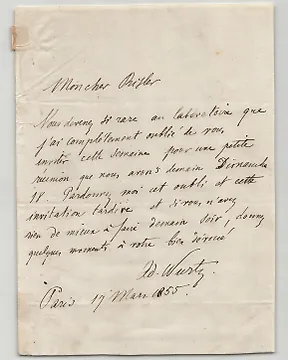 Mon cher Rissler
Vous devenez si rare au laboratoire que
j'ai complètement oublié de vous
inviter cette semaine pour une petite
réunion que nous avons demain Dimanche
18. Pardonnez moi cet oubli et cette
invitation tardive et si vous n'avez
rien de mieux à faire demain soir, donnez
quelques moments à votre bien dévoué
Ad. Wurtz.
Paris 17 Mars 1855.